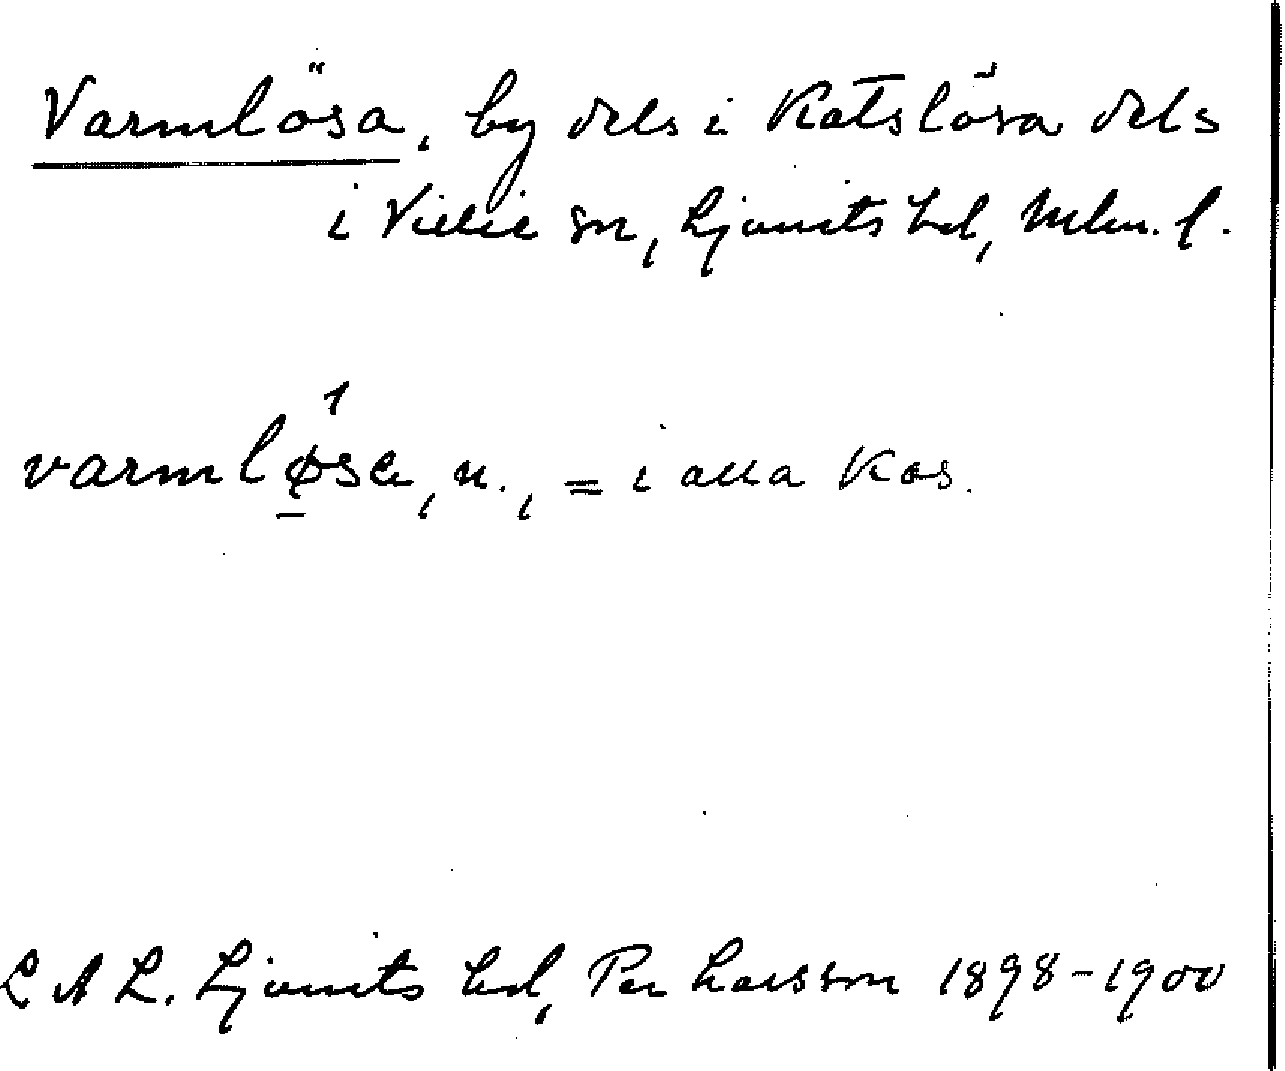 Varmlösa, by dels i Katslösa dels
i Villie sn, Ljunits hd, Mlm. l.
varmløsa, n., = i alla kas.
L A L. Ljunits hd, Per Larsson 1898-1900